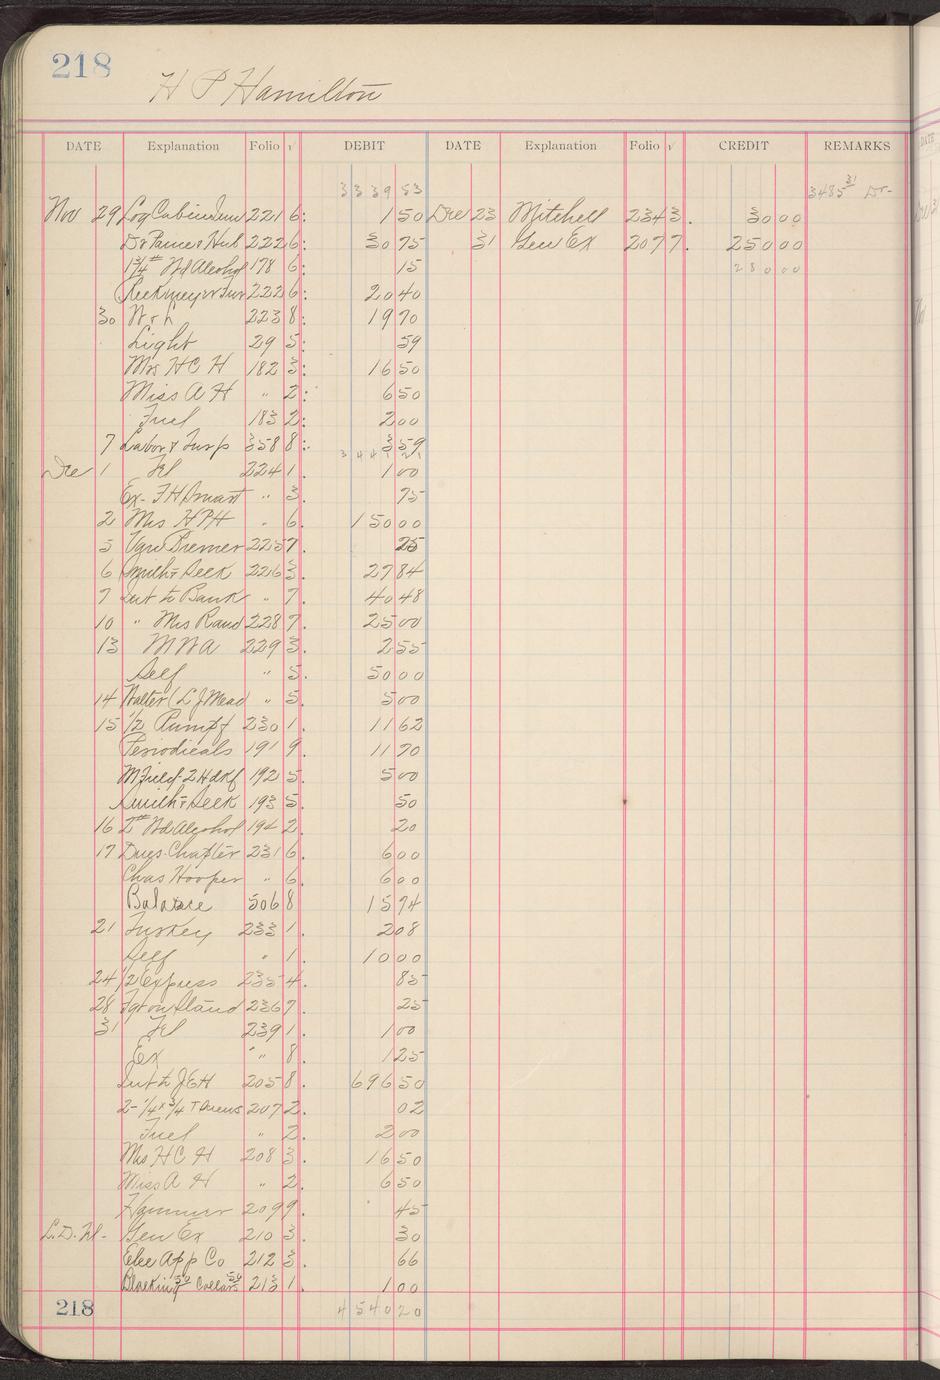 218
H P Hamilton
DATE Explanation Folio √ DEBIT DATE Explanation Folio √ CREDIT REMARKS
3339 53 3485 31 Dr-
Nov 29 Log Cabin 221 6: 1 50 Dec 23 Mitchell 234 3. 30 00
Dr Paine & Nub 222 6: 30 75 31 Gen Ex 207 7. 250 00
1 3/4 # Wd Alcohol 178 6: 15 280 00
222 6: 20 40
30 W + h 223 8: 19 70
Light 29 5: 59
Mrs H C H 182 3: 16 50
Miss A H " 2: 6 50
Fuel 183 2: 2 00
7 Labor & Insp 358 8: 3 59
3441 21
Dec 1 Tel 224 1. 1 00
Ex- F H Smart " 3. 75
2 Mrs H P H " 6. 150 00
5 Van Bremer 225 7. 25
6 Smith & Seek 226 3. 27 84
7 Int to Bank " 7. 40 48
10 " Mrs Rand 228 7. 25 00
13 M W A 229 3. 2 55
Self " 5. 50 00
14 Walter (L J Mead " 5. 5 00
15 1/2 230 1. 11 62
Periodicals 191 9. 11 70
M Field- 2 Hdkf 192 5. 5 00
Smith & Seek 193 5. 50
16 2# Wd Alcohol 194 2. 20
17 Dues Chapter 231 6. 6 00
Chas Hooper " 6. 6 00
Balance 506 8 15 74
21 Turkey 233 1. 2 08
Self " 1. 10 00
24 1/2 Express 235 4. 85
28 Fgt on Stand 236 7. 25
31 Tel 239 1. 1 00
Ex " " 8. 1 25
Int to J E H 205 8. 696 50
2- 1/4 x 3/4 T Screws 207 2. 02
Fuel " 2. 2 00
Mrs H C H 208 3. 16 50
Miss A H " 2. 6 50
Hammer 209 9. 45
L.D. Tel- Gen Ex 210 3. 30
Elec App Co 212 3. 66
Blacking 50 Collars 50 213 1. 1 00
218 4540 20